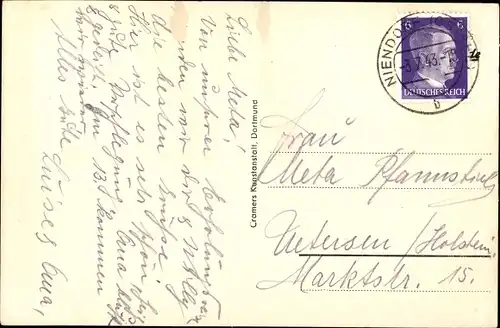 Liebe Meta!
Von unserer
senden wir Dir
die besten Grüße.
Hier ist es sehr schön,
gute Verpflegung. Oma
Am 13. kommen
wir
Alles Gute
Luise & Oma,
Cramers Kunstanstalt, Dortmund
NIENDORF
.43.-15
b
6 6
DEUTSCHES REICH
Frau
Meta Pfannstiel
Uetersen / Holstein.
Marktstr. 15.